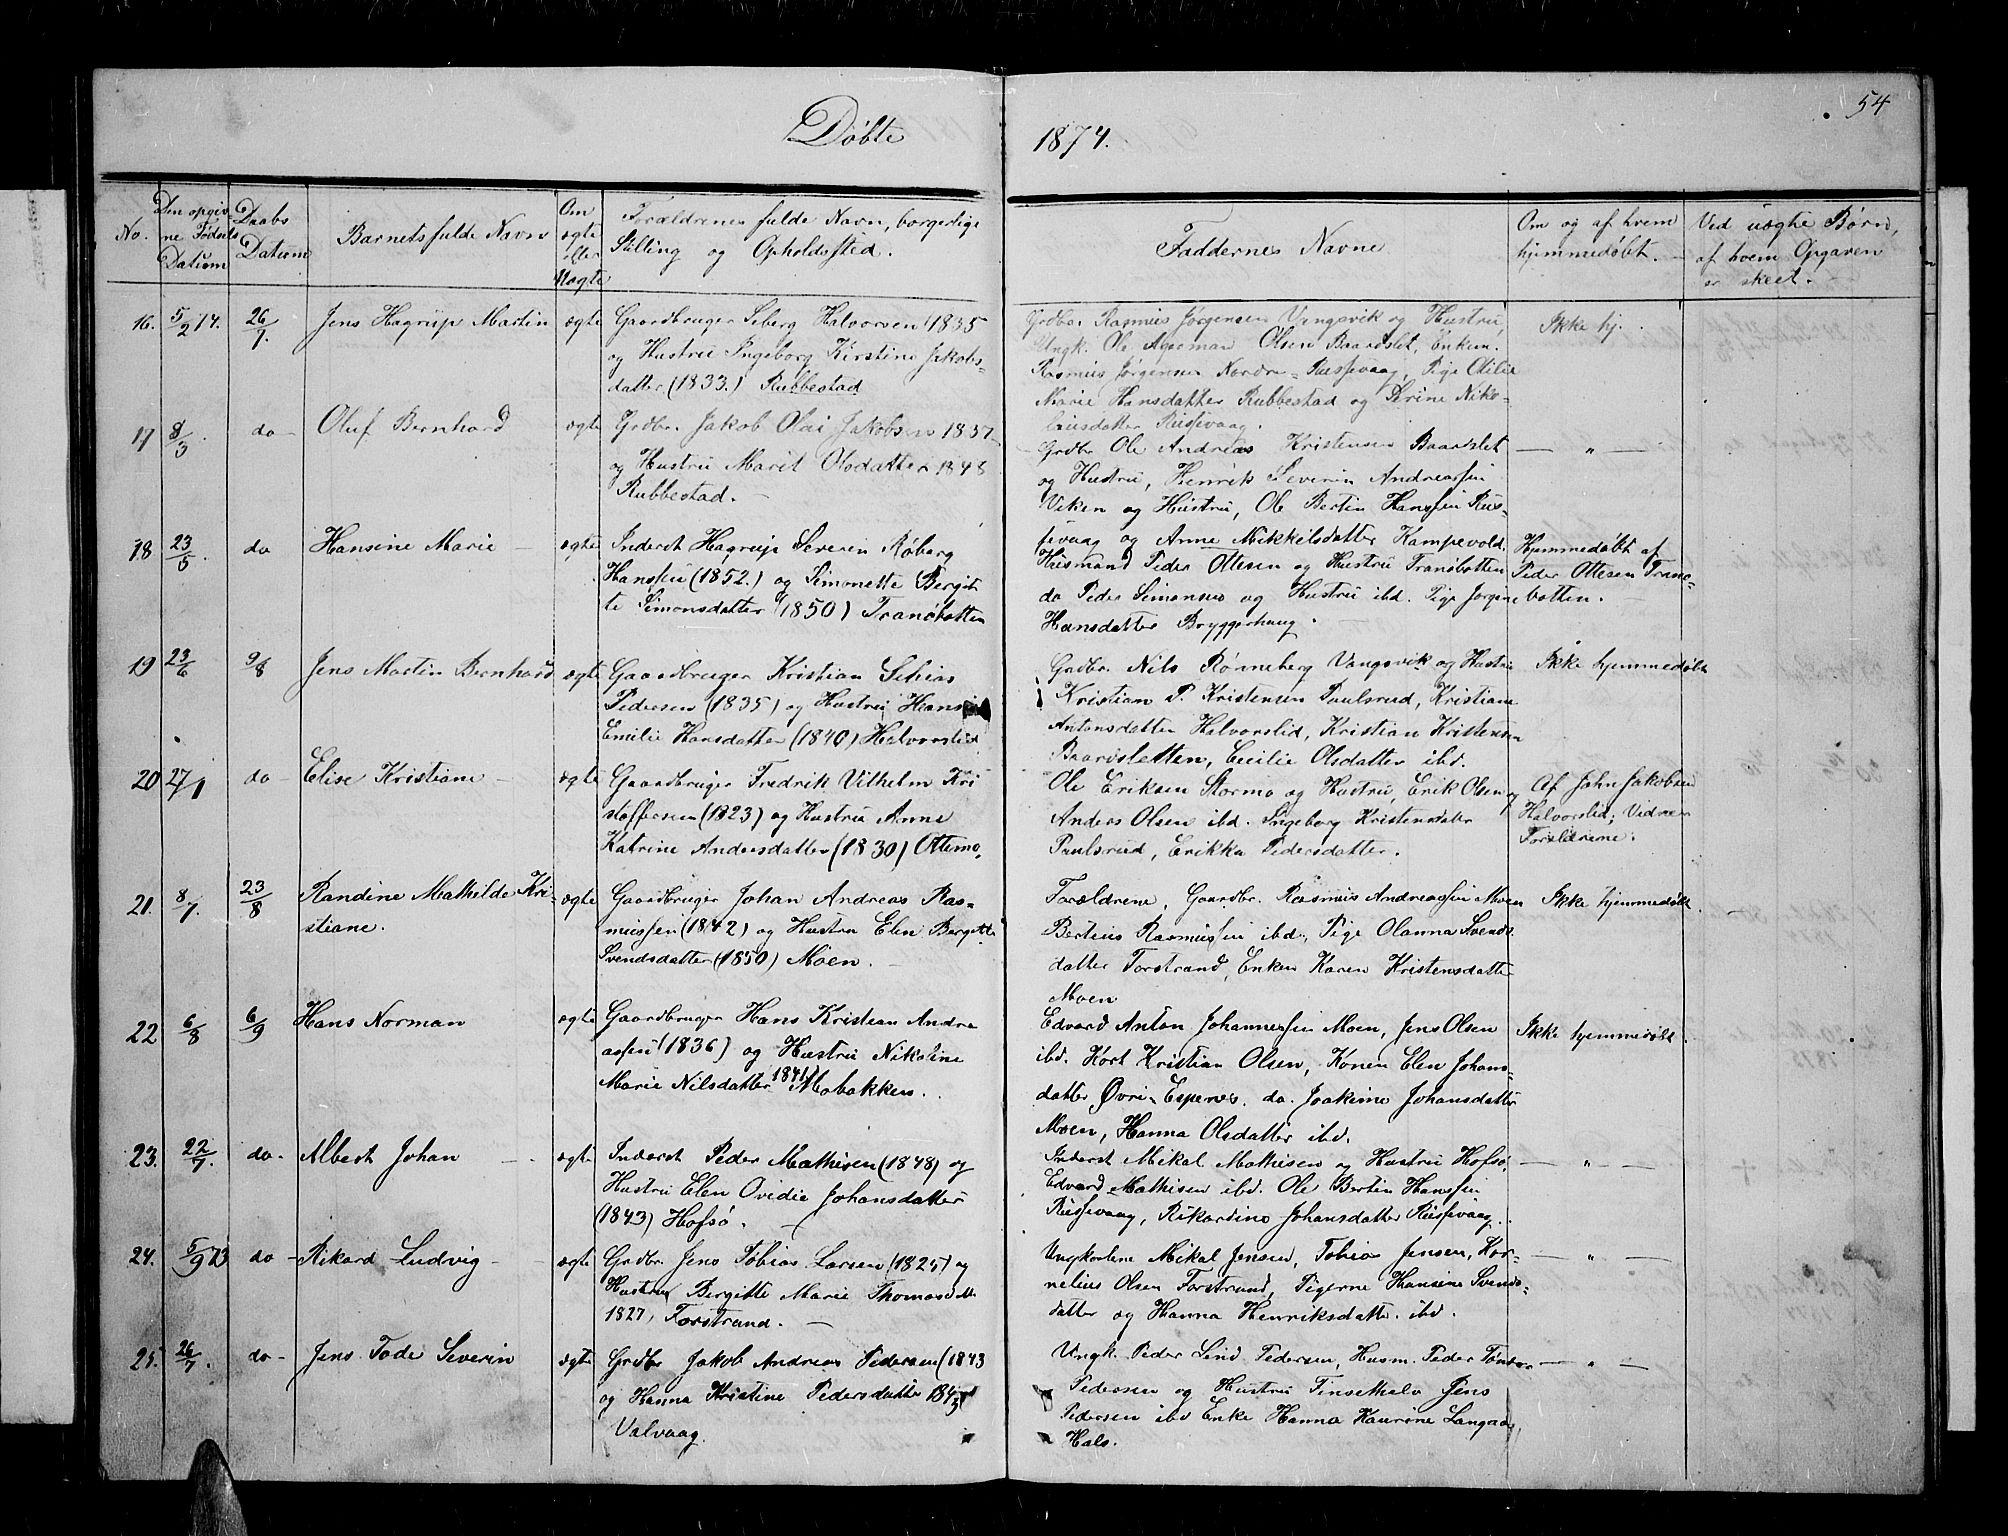 54
Døbte
1874.
No.
Den opgiv-
ne Fødsels
Datum
Daabs
Datum
Barnets fulde Navn
Om
ægte
eller
uægte
Forældrenes fulde Navn, borgerlige
Stilling og Opholdssted.
Faddernes Navne
Om og af hvem
hjemmedøbt.
Ved uægte Børn,
af hvem Opgaven
er skeet.
16. 5/2 74. 26/7. Jens Hagrup Martin ægte
Gaardbruger Seberg Halvorsen (1835
og Hustru Ingeborg Kirstine Jakobs-
datter (1833.) Rubbestad
Grdbr. Rasmus Jørgensen Vangsvik og Hustru,
Ungk. Ole Olsen Baardslet, Enkem.
Rasmus Jørgensen Nordre-Russevaag, Pige Otilie
Marie Hansdatter Rubbestad og Serine Niko-
laisdatter Russevaag.
Ikke hj.
17 8/3. do- Oluf Bernhard ægte
Grdbr. Jakob Olai Jakobsen 1837
og Hustru Marit Olsdatter 1848
Rubbestad. -
Grdbr Ole Andreas Kristensen Baardslet
og Hustru, Henrik Severin Andreassen
Viken og Hustru, Ole Bertin Hanssen Rus-
sevaag og Anne Mikkelsdatter Kampevold.
— " —
18 23/5. do Hansine Marie - ægte
Inderst Hagrup Severin Røberg
Hanssen (1852.) og Simonette Bergit-
te Simonsdatter (1850) Tranøbotten
Husmand Peder Ottesen og Hustru Tranøbotten
do Peder Simonsen og Hustru ibd. Pige Jørgine
Hansdatter Bryggerhaug.
Hjemmedøbt af
Peder Ottesen Tranø-
botten. -
19 23/6 9/8 Jens Martin Bernhard ægte
Gaardbruger Kristian
Pedersen (1835) og Hustru
Emilie Hansdatter (1840) Halvorslid
Grdbr. Nils Rønneberg Vangsvik og Hustru
Kristian P. Kristensen Paulsrud, Kristiane
Antonsdatter Halvorslid, Kristian Kristensen
Baardsletten, Cecilie Olsdatter ibd.
Ikke hjemmedøbt
20 27/1 do- Elise Kristiane - ægte
Gaardbruger Fredrik Vilhelm Kri
stoffersen (1823) og Hustru Anne
Katrine Andersdatter (1830) Ottemo,
Ole Eriksen Stormo og Hustru, Erik Olsen og
Anders Olsen ibd. Ingeborg Kristensdatter
Paulsrud, Erikka Pedersdatter.
Af John Jakobsen
Halvorslid; Vidner
Forældrene.
21. 8/7. 23/8 Randine Mathilde Kri-
stiane.
ægte
Gaardbruger Johan Andreas Ras-
mussen (1842) og Hustru Elen Bergitte
Svendsdatter (1850) Moen. -
Forældrene, Gaardbr. Rasmus Andreassen Moen
Berteus Rasmussen ibd, Pige Olanna Svends-
datter Forstrand, Enken Karen Kristensdatter
Moen
Ikke hjemmedøbt
22 6/8 6/9 Hans Norman ægte
Gaardbruger Hans Kristian Andre
assen (1836) og Hustru Nikoline
Marie Nilsdatter 1841) Mobakken.
Edvard Anton Johannessen Moen, Jens Olsen
ibd. Kort Kristian Olsen, Konen Elen Johans-
datter Øvri-Espenes. do. Joakime Johansdatter
Moen, Hanna Olsdatter ibd.
Ikke hjemmedøbt.
23. 22/7. do- Albert Johan - - ægte
Inderst Peder Mathisen (1848) og
Hustru Elen Ovidie Johansdatter
(1843) Hofsø. -
Inderst Mikal Mathisen og Hustru Hofsø,
Edvard Mathisen ibd. Ole Bertin Hanssen
Russevaag, Rikardine Johansdatter Russevaag.
— " —
24. 5/9 73 do - Rikard Ludvig - ægte
Grdbr. Jens Tobias Larsen (1825) og
Hustru Bergitte Marie Thomasdtr
1827, Forstrand. -
Ungkarlene Mikal Jensen, Tobias Jensen, Kor-
nelius Olsen Forstrand, Pigerne Hansine Svends-
datter og Hanna Henriksdatter. ibd.
— " —
25. 26/7. do- Jens Tode Severin ægte
Grdbr Jakob Andreas Pedersen (1843
og Hanna Kristine Pedersdatter 1843
Valvaag.
Ungk. Peder Lind Pedersen, Husm. Peder
Pedersen og Hustru Finsethals Jens
Pedersen ibd Enke Hanna Kaurine
Hals.
— " —